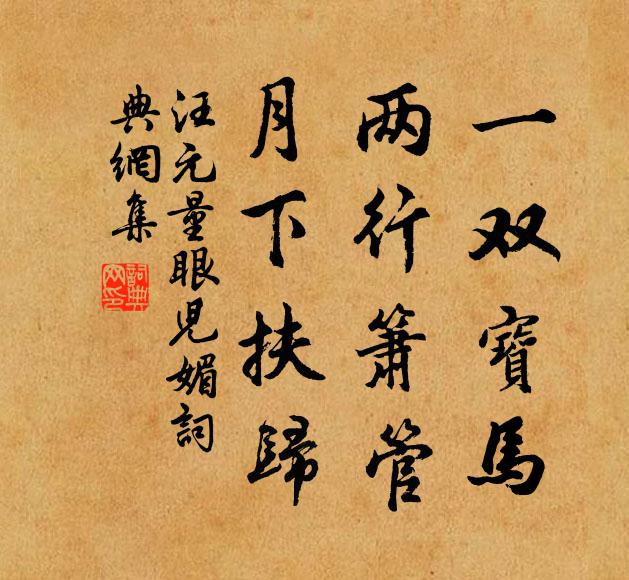 一双寶馬
两行簫管
月下扶歸
汪元量眼児媚詞
典網集
詞典網印